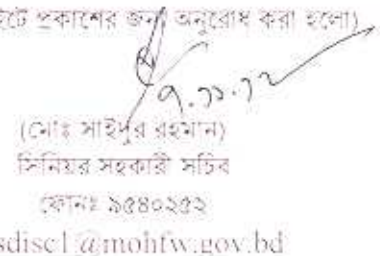 ইটে প্রকাশের জন্য অনুরোধ করা হলো)
৭.১১.১২
(মোঃ সাইদুর রহমান)
সিনিয়র সহকারী সচিব
ফোনঃ ৯৫৪০২৫২
sdisc1@mohfw.gov.bd